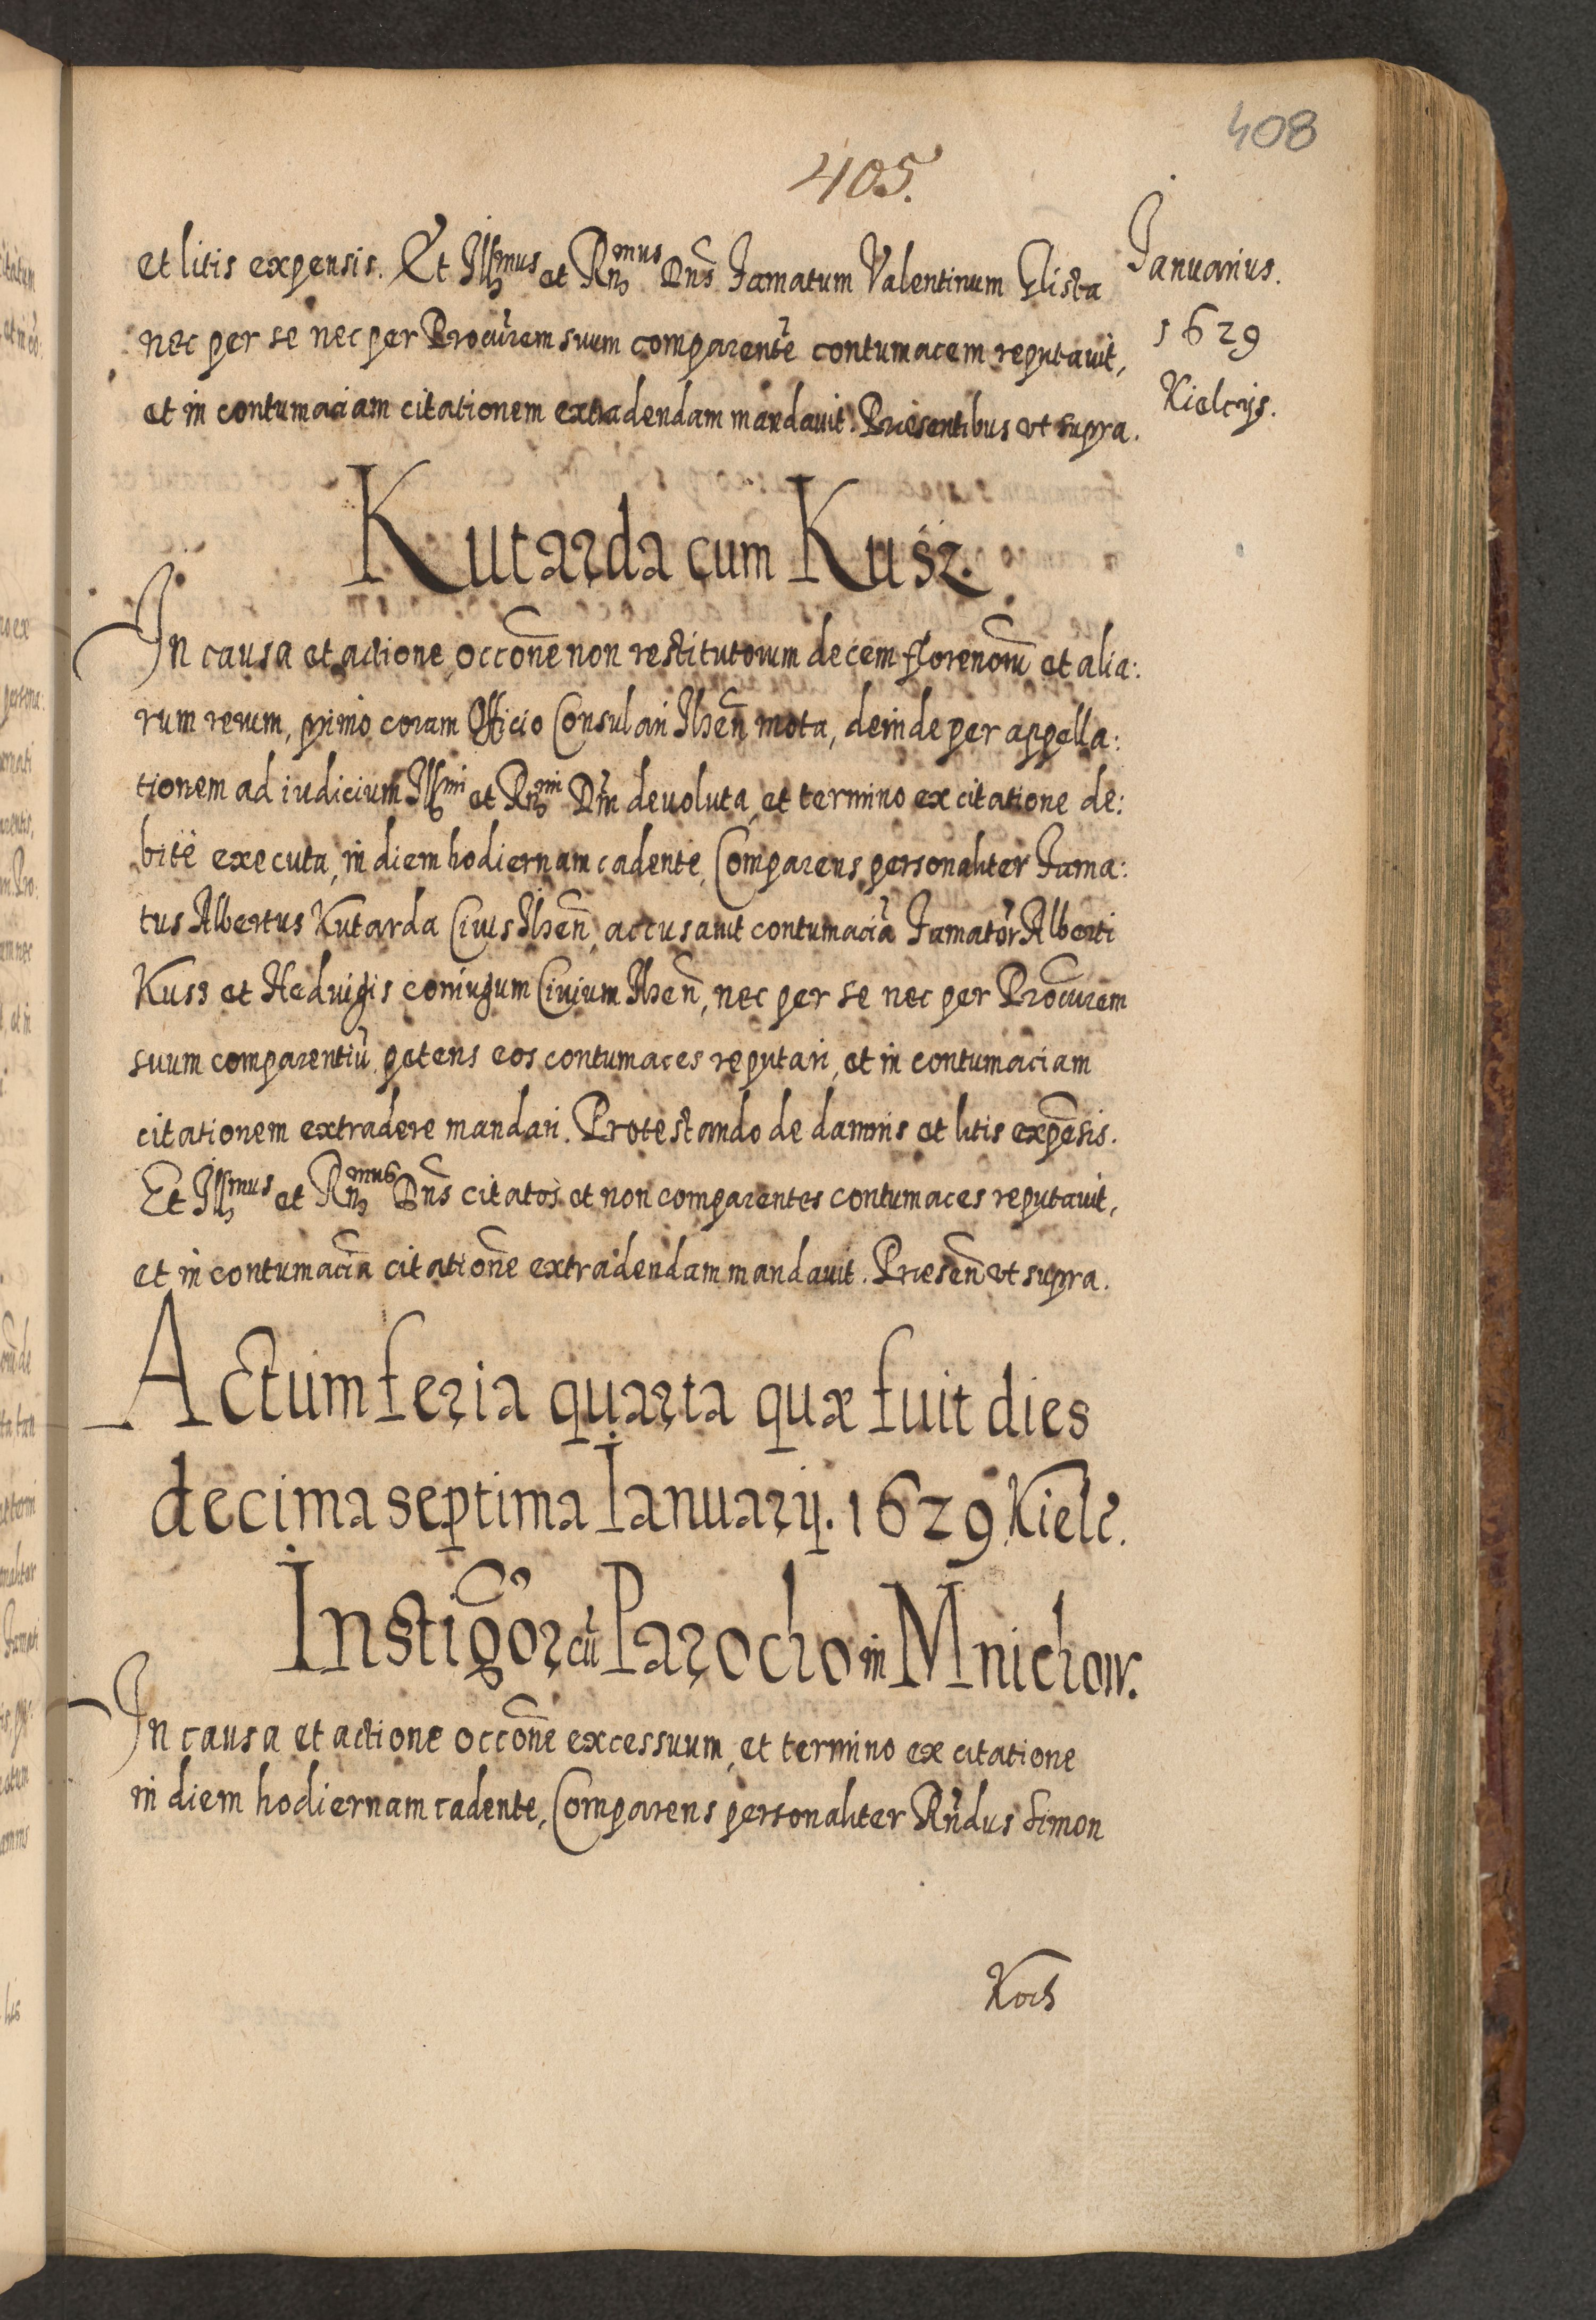 408
405.
Januarius.
1629
Kielcijs.
et litis expensis. Et Illmus et Rnmus Dns Famatum Valentinum Glista
nec per se nec per Procurem suum comparente contumacem reputauit,
et in contumaciam citationem extradendam mandauit. Præsentibus vt supra.
Kutarda cum Kusz.
In causa et actione occone non restitutorum decem florenoru et alia:
rum rerum, primo coram Officio Consulari Ilzen mota, deinde per appella:
tionem ad iudicium Illmi et Rnmi Dni deuoluta, et termino ex citatione de:
bite executa, in diem hodiernam cadente, Comparens personaliter Fama:
tus Albertus Kutarda Ciuis Ilzen, accusauit contumacia Famator Alberti
Kuss et Heduigis coniugum Ciuium Ilzen, nec per se nec per Procurem
suum comparentiu, petens eos contumaces reputari, et in contumaciam
citationem extradere mandari. Protestando de damnis et litis expesis.
Et Illmus et Rnmus Dns citatos et non comparentes contumaces reputauit,
et in contumacia citatione extradendam mandauit. Præsen vt supra.
Actum feria quarta quæ fuit dies
decima septima Ianuarij. 1629. Kielc.
Instigor cu Parocho in Mnichow.
In causa et actione occone excessuum, et termino ex citatione
in diem hodiernam cadente, Comparens personaliter Rndus Simon
Koch